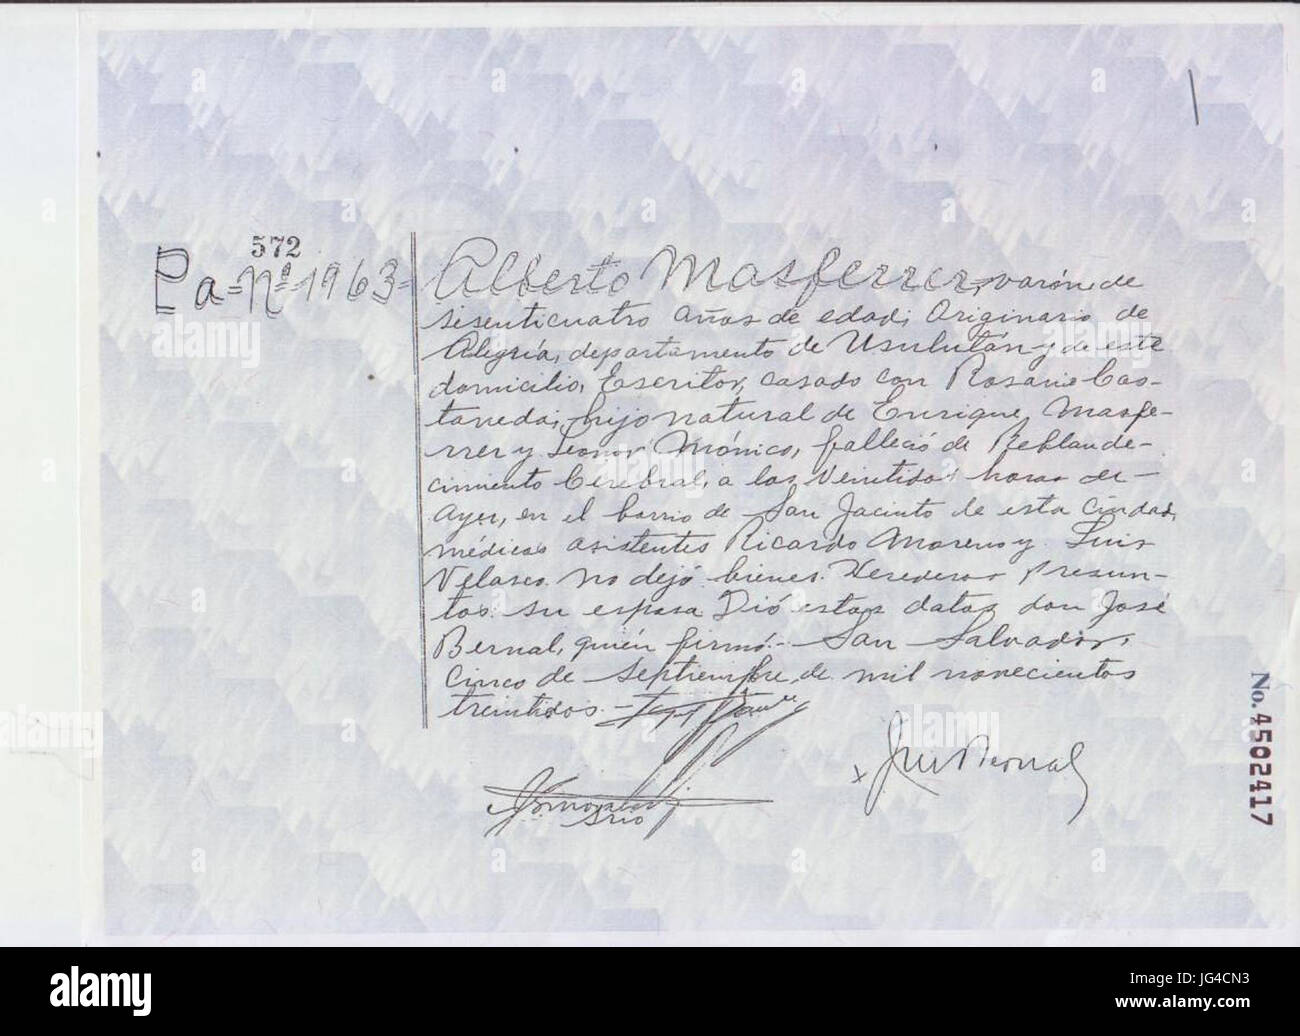 572
Pa=Nº=1963=
Alberto Masferrer, varón, de
sesenticuatro años de edad, Originario de
Alegría, departamento de Usulután y de este
domicilio, Escritor, casado con Rosario Cas-
taneda, hijo natural de Enrique Masfe-
rrer y Leonor Mónico, falleció de Reblande-
cimiento Cerebral, a las veintidos horas de
ayer, en el barrio de San Jacinto de esta ciudad,
médicos asistentes Ricardo Moreno y Luis
Velasco. No dejó bienes. Herederos presun-
tos: su esposa. Dió estos datos don José
Bernal, quién firmó.- San Salvador,
cinco de septiembre, de mil novecientos
treintidos.-
x Bernal
Srio
No. 4502417
alamy
alamy stock photo
JG4CN3
www.alamy.com